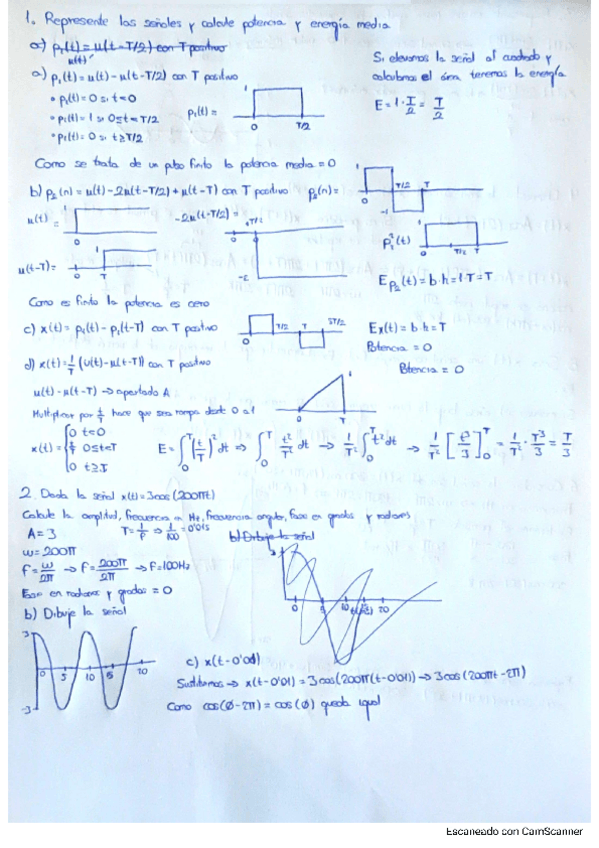 1. Represente las señales y calcule potencia y energía media
a) p₁(t) = u(t-T/2) con T positivo
u(t)
a) p₁(t) = u(t) - u(t-T/2) con T positivo
• p₁(t) = 0 si t<0
• p₁(t) = 1 si 0≤t<T/2
• p₁(t) = 0 si t≥T/2
p₁(t) =
1
0 T/2
Si elevamos la señal al cuadrado y
calculamos el área, tenemos la energía
E = 1 · T/2 = T/2
Como se trata de un pulso finito la potencia media = 0
b) p₂(n) = u(t) - 2u(t-T/2) + u(t-T) con T positivo p₂(n) =
1
T/2 T
-1
u(t) =
1
0
-2u(t-T/2) =
0 T/2
-2
p₂²(t)
1
0 T/2 T
u(t-T) =
1
0 T
E p₂(t) = b·h = 1·T = T
Como es finito la potencia es cero
c) x(t) = p₁(t) - p₁(t-T) con T positivo
0 T/2 T 3T/2
Ex(t) = b·h = T
Potencia = 0
d) x(t) = t/T (u(t) - u(t-T)) con T positivo
Potencia = 0
u(t) - u(t-T) → apartado A
Multiplicar por t/T hace que sea rampa desde 0 a 1
0 T
x(t) = { 0 t<0
t/T 0≤t<T
0 t≥T
E = ∫₀ᵀ (t/T)² dt ⇒ ∫₀ᵀ t²/T² dt → 1/T² ∫₀ᵀ t² dt → 1/T² [t³/3]₀ᵀ = 1/T² · T³/3 = T/3
2. Dada la señal x(t) = 3cos(200πt)
Calcule la amplitud, frecuencia en Hz, frecuencia angular, fase en grados y radianes
A = 3
T = 1/f ⇒ 1/100 = 0'01s
b) Dibuje la señal
ω = 200π
f = ω/2π → f = 200π/2π → f = 100Hz
0 5 10 20
Fase en radianes y grados = 0
b) Dibuje la señal
3
0 5 10 15 20
-3
c) x(t-0'01)
Sustituimos → x(t-0'01) = 3cos(200π(t-0'01)) → 3cos(200πt-2π)
Como cos(∅-2π) = cos(∅) queda igual
Escaneado con CamScanner